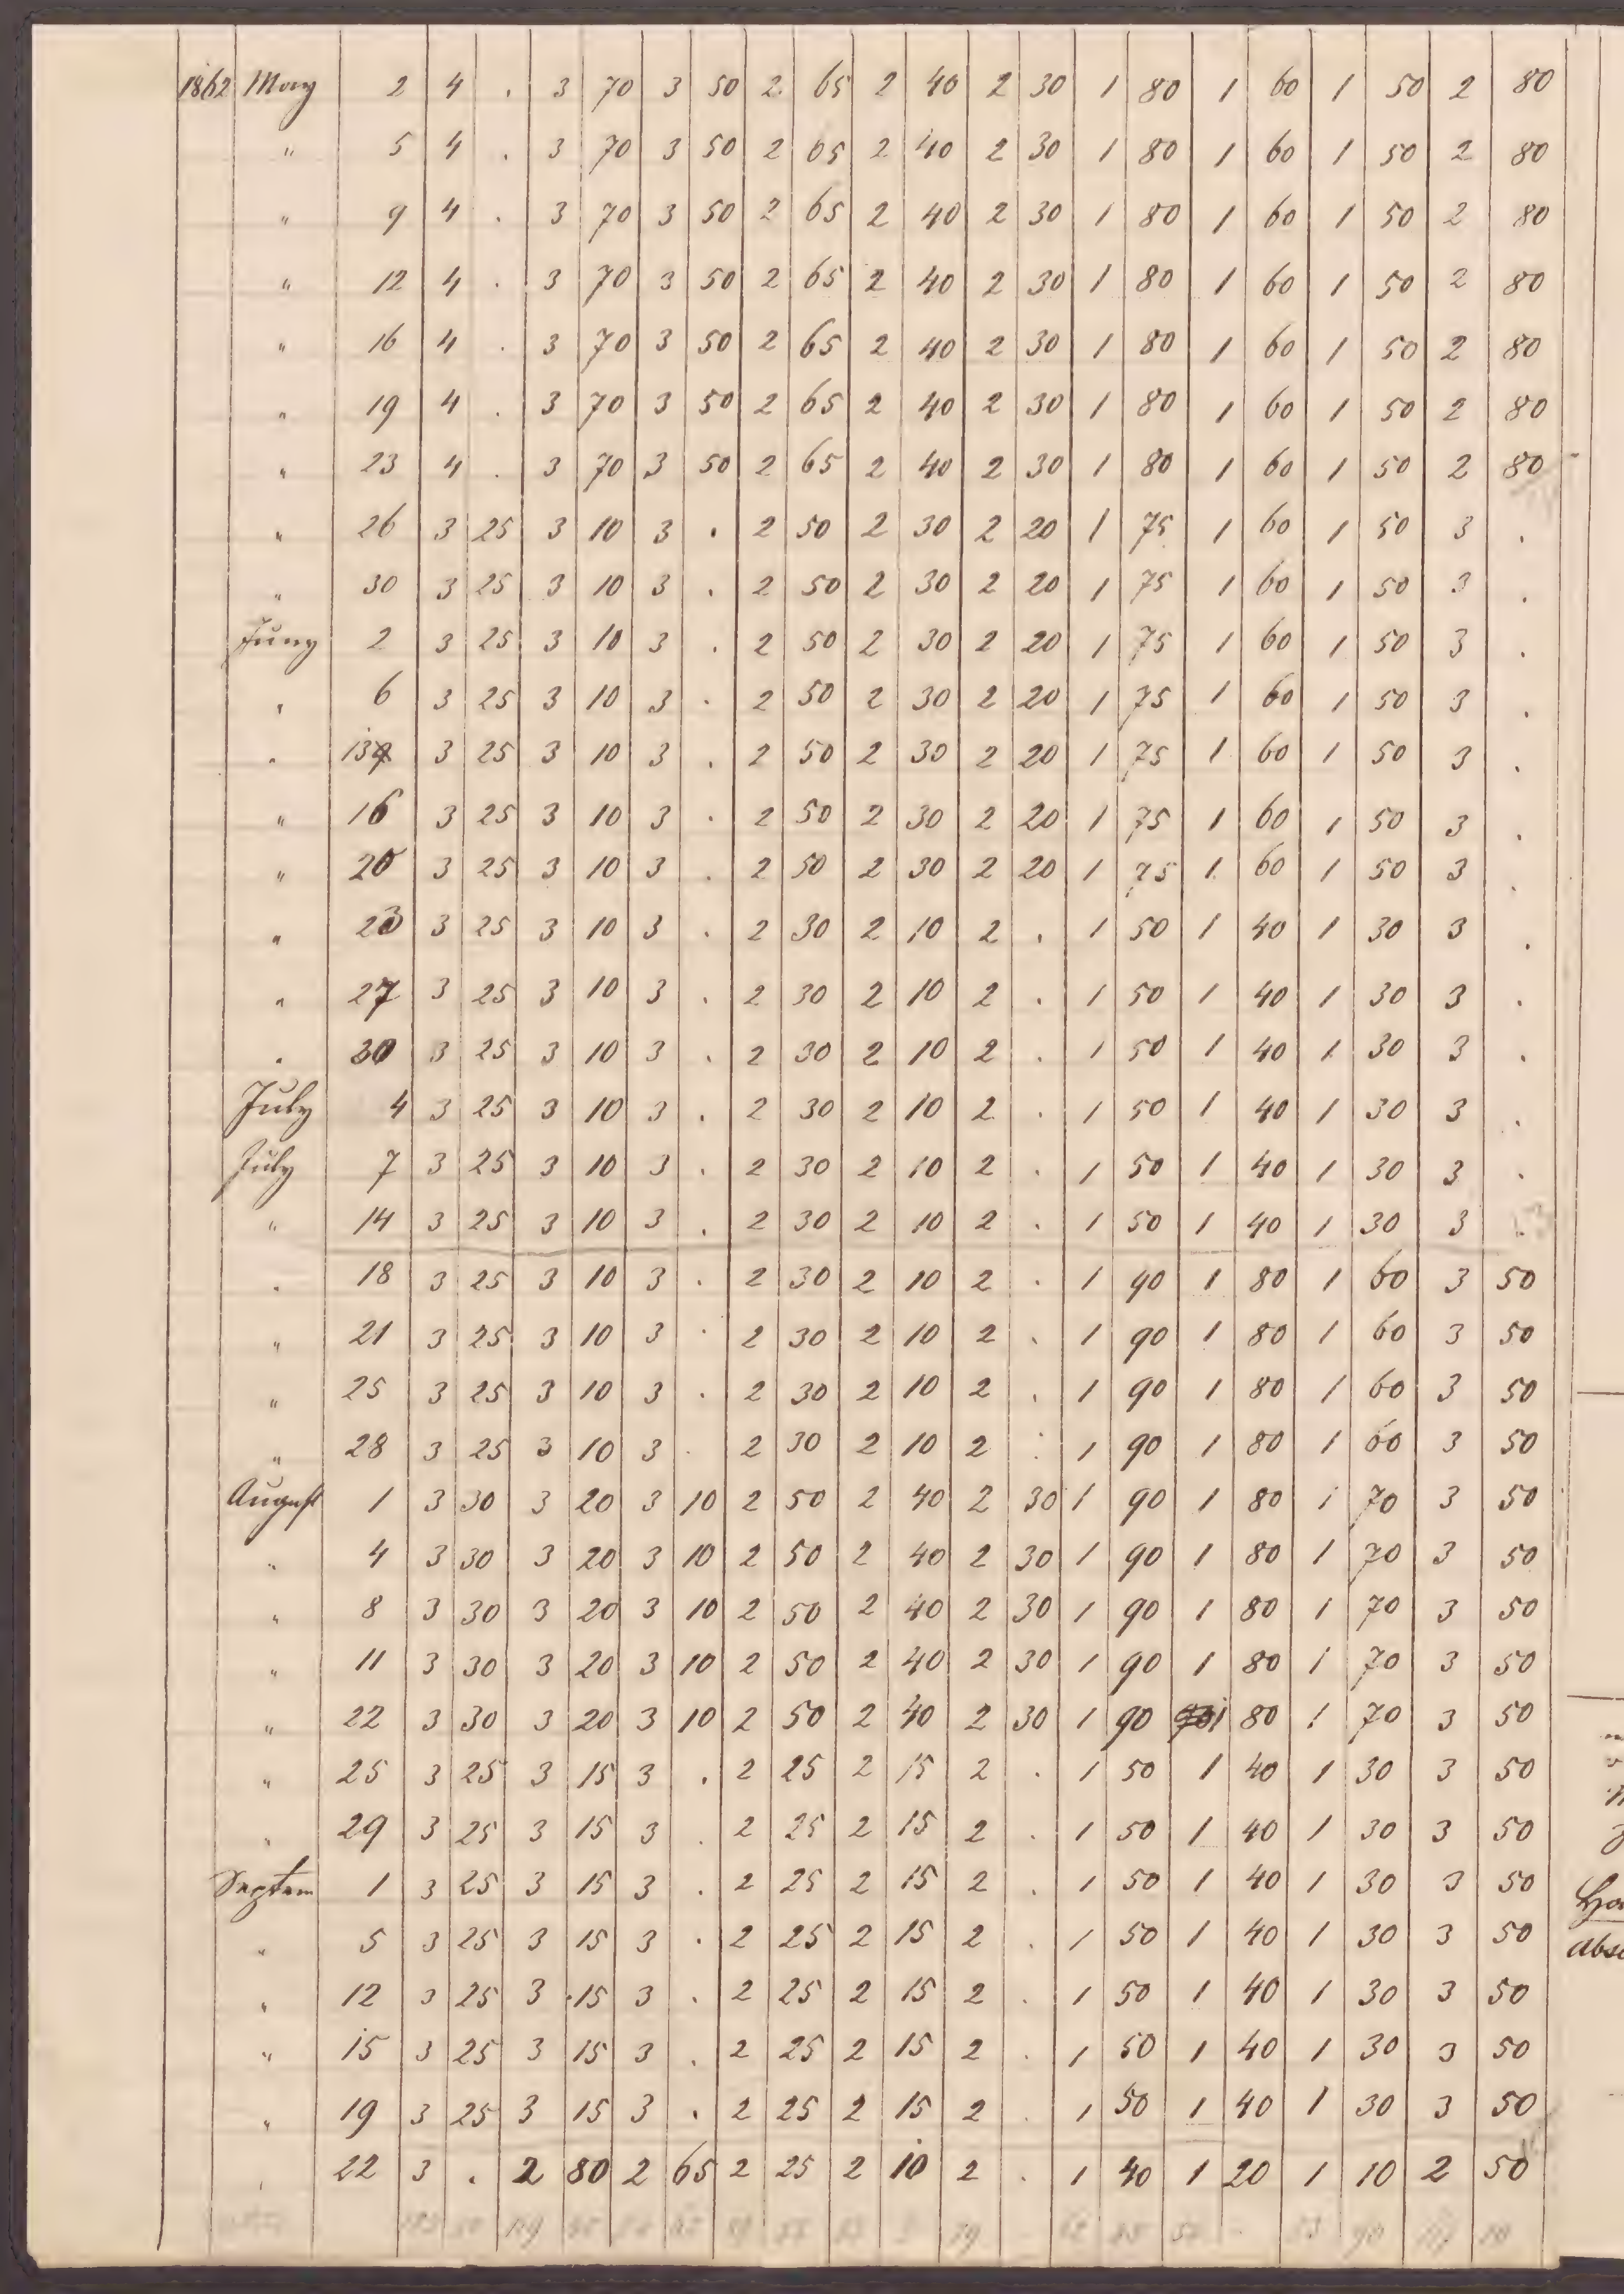 1862 May 2 4 . 3 70 3 50 2 65 2 40 2 30 1 80 1 60 1 50 2 80
" 5 4 . 3 70 3 50 2 65 2 40 2 30 1 80 1 60 1 50 2 80
" 9 4 . 3 70 3 50 2 65 2 40 2 30 1 80 1 60 1 50 2 80
" 12 4 . 3 70 3 50 2 65 2 40 2 30 1 80 1 60 1 50 2 80
" 16 4 . 3 70 3 50 2 65 2 40 2 30 1 80 1 60 1 50 2 80
" 19 4 . 3 70 3 50 2 65 2 40 2 30 1 80 1 60 1 50 2 80
" 23 4 . 3 70 3 50 2 65 2 40 2 30 1 80 1 60 1 50 2 80
" 26 3 25 3 10 3 . 2 50 2 30 2 20 1 75 1 60 1 50 3 .
" 30 3 25 3 10 3 . 2 50 2 30 2 20 1 75 1 60 1 50 3 .
Juny 2 3 25 3 10 3 . 2 50 2 30 2 20 1 75 1 60 1 50 3 .
" 6 3 25 3 10 3 . 2 50 2 30 2 20 1 75 1 60 1 50 3 .
" 13 3 25 3 10 3 . 2 50 2 30 2 20 1 75 1 60 1 50 3 .
" 16 3 25 3 10 3 . 2 50 2 30 2 20 1 75 1 60 1 50 3 .
" 20 3 25 3 10 3 . 2 50 2 30 2 20 1 75 1 60 1 50 3 .
" 23 3 25 3 10 3 . 2 30 2 10 2 . 1 50 1 40 1 30 3 .
" 27 3 25 3 10 3 . 2 30 2 10 2 . 1 50 1 40 1 30 3 .
" 30 3 25 3 10 3 . 2 30 2 10 2 . 1 50 1 40 1 30 3 .
July 4 3 25 3 10 3 . 2 30 2 10 2 . 1 50 1 40 1 30 3 .
July 7 3 25 3 10 3 . 2 30 2 10 2 . 1 50 1 40 1 30 3 .
" 14 3 25 3 10 3 . 2 30 2 10 2 . 1 50 1 40 1 30 3 .
" 18 3 25 3 10 3 . 2 30 2 10 2 . 1 90 1 80 1 60 3 50
" 21 3 25 3 10 3 . 2 30 2 10 2 . 1 90 1 80 1 60 3 50
" 25 3 25 3 10 3 . 2 30 2 10 2 . 1 90 1 80 1 60 3 50
" 28 3 25 3 10 3 . 2 30 2 10 2 . 1 90 1 80 1 60 3 50
August 1 3 30 3 20 3 10 2 50 2 40 2 30 1 90 1 80 1 70 3 50
" 4 3 30 3 20 3 10 2 50 2 40 2 30 1 90 1 80 1 70 3 50
" 8 3 30 3 20 3 10 2 50 2 40 2 30 1 90 1 80 1 70 3 50
" 11 3 30 3 20 3 10 2 50 2 40 2 30 1 90 1 80 1 70 3 50
" 22 3 30 3 20 3 10 2 50 2 40 2 30 1 90 1 80 1 70 3 50
" 25 3 25 3 15 3 . 2 25 2 15 2 . 1 50 1 40 1 30 3 50
" 29 3 25 3 15 3 . 2 25 2 15 2 . 1 50 1 40 1 30 3 50
Septem 1 3 25 3 15 3 . 2 25 2 15 2 . 1 50 1 40 1 30 3 50
" 5 3 25 3 15 3 . 2 25 2 15 2 . 1 50 1 40 1 30 3 50
" 12 3 25 3 15 3 . 2 25 2 15 2 . 1 50 1 40 1 30 3 50
" 15 3 25 3 15 3 . 2 25 2 15 2 . 1 50 1 40 1 30 3 50
" 19 3 25 3 15 3 . 2 25 2 15 2 . 1 50 1 40 1 30 3 50
" 22 3 . 2 80 2 65 2 25 2 10 2 . 1 40 1 20 1 10 2 50